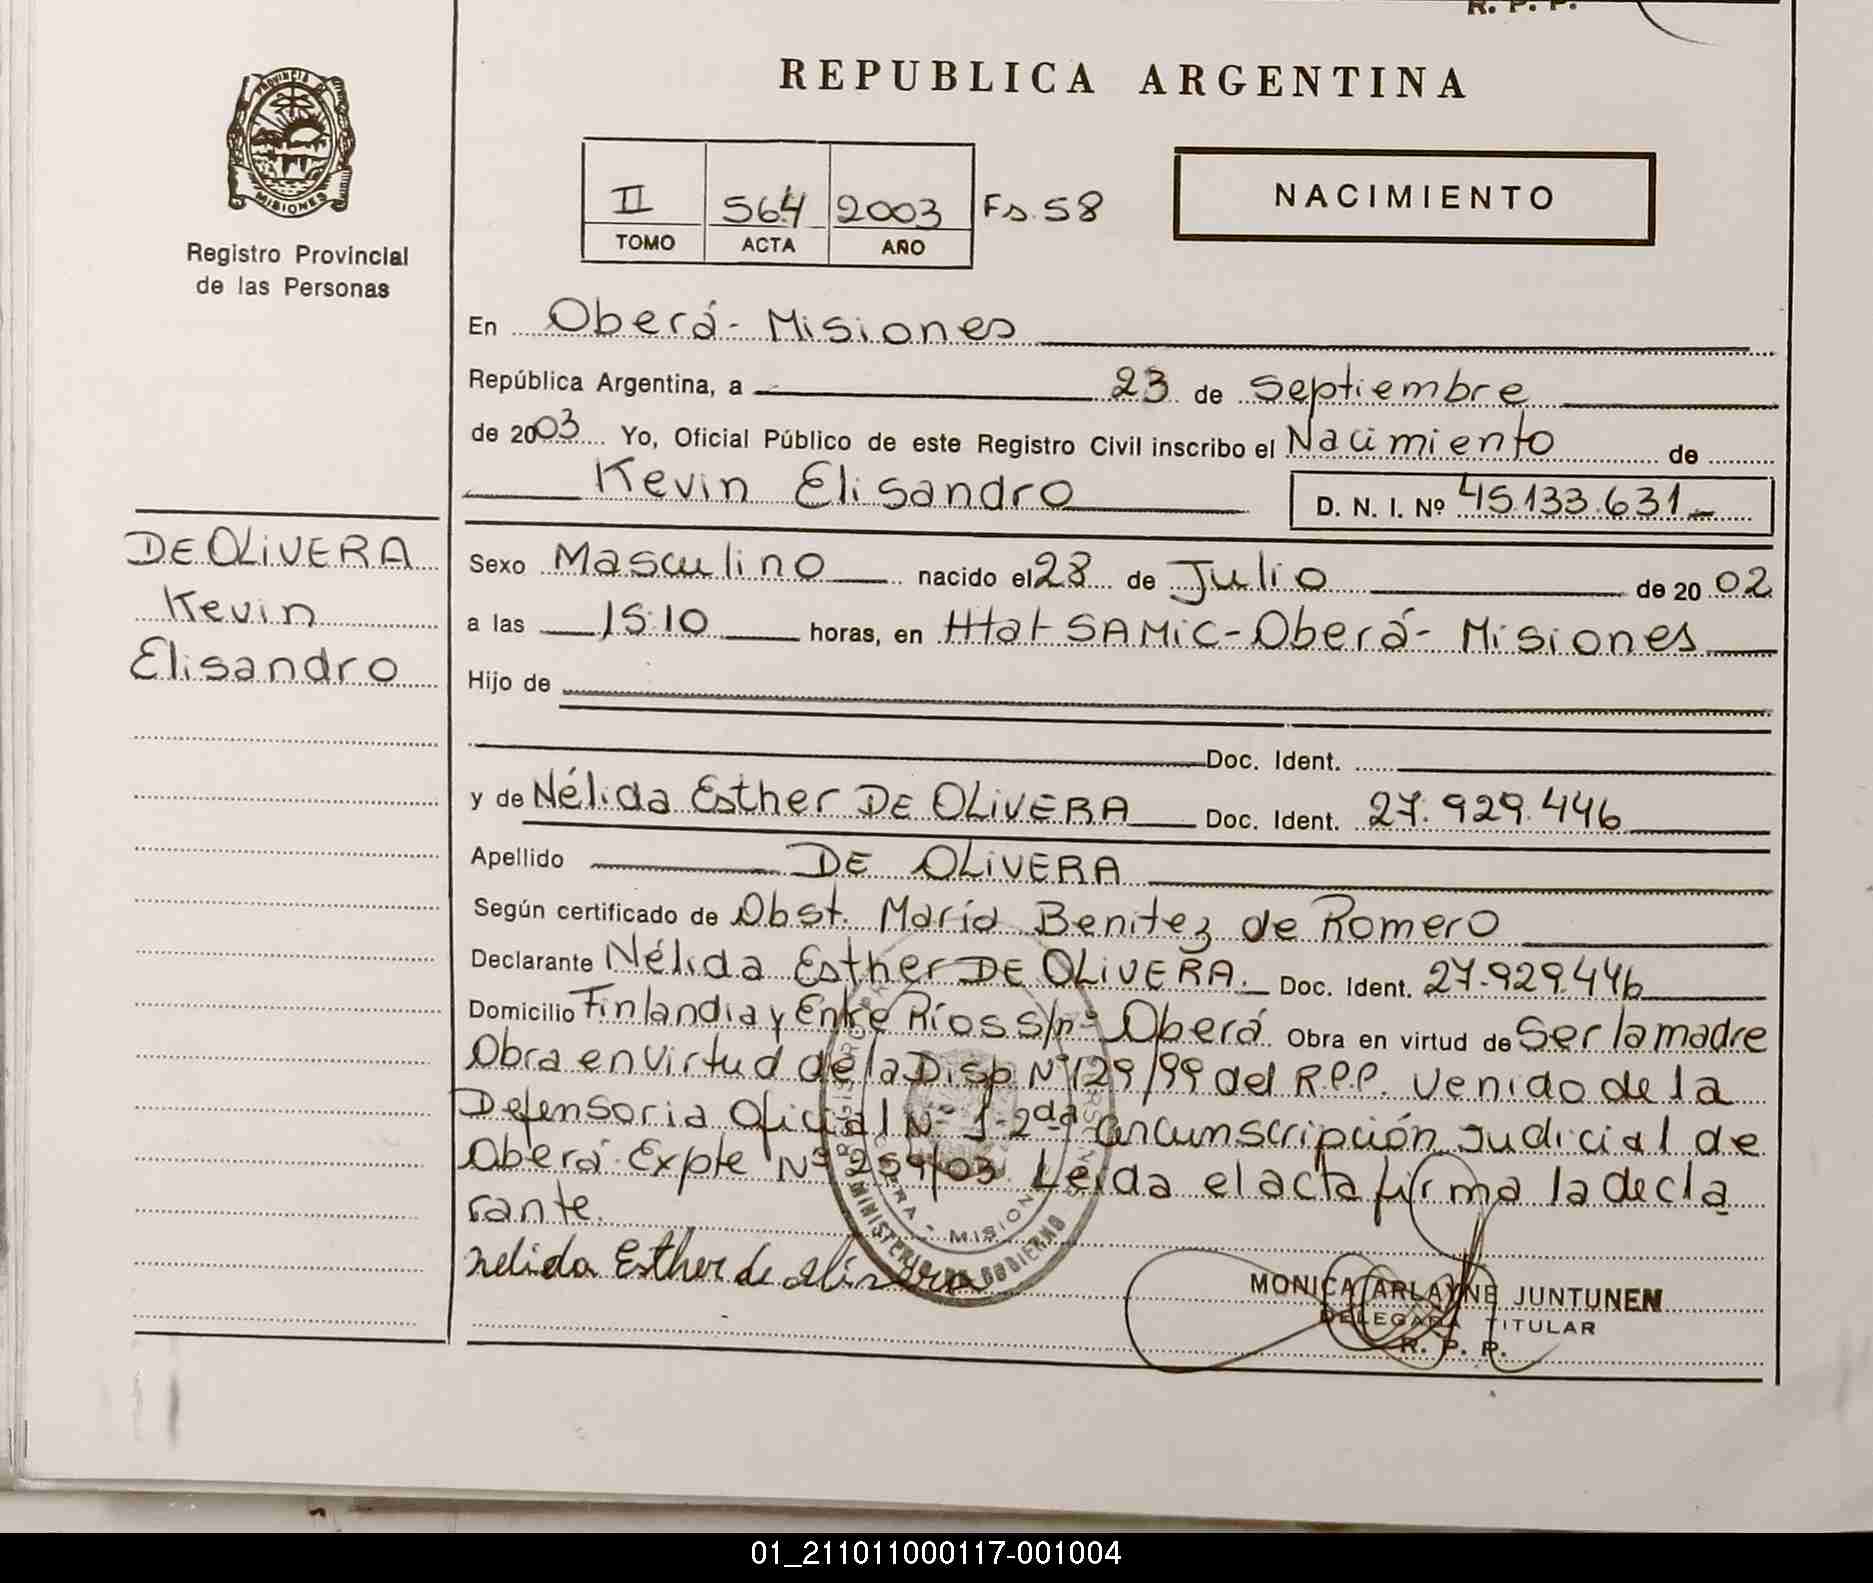 R. P. P.
REPUBLICA ARGENTINA
PROVINCIA DE
MISIONES
Registro Provincial
de las Personas
II 564 2003 Fs. 58
TOMO ACTA AÑO
NACIMIENTO
En Oberá - Misiones
República Argentina, a 23 de Septiembre
de 2003 Yo, Oficial Público de este Registro Civil inscribo el Nacimiento de
Kevin Elisandro D. N. I. Nº 45.133.631
DE OLIVERA
Kevin
Elisandro
Sexo Masculino nacido el 28 de Julio de 20 02
a las 15:10 horas, en Htal SAMIC - Oberá - Misiones
Hijo de
Doc. Ident.
y de Nélida Esther DE OLIVERA Doc. Ident. 27.929.446
Apellido DE OLIVERA
Según certificado de Obst. María Benitez de Romero
Declarante Nélida Esther DE OLIVERA. Doc. Ident. 27.929.446
Domicilio Finlandia y Entre Ríos s/nº Oberá Obra en virtud de Ser la madre
Obra en virtud de la Disp Nº 129/99 del R.P.P. Venido de la
Defensoria Oficial Nº 1 - 2da Circunscripción Judicial de
Oberá Expte Nº 259/03 Leida el acta firma la decla
rante.
Nelida Esther de Olivera
MINISTERIO DE GOBIERNO
MONICA ARLAYNE JUNTUNEN
DELEGADA TITULAR
R. P. P.
01_211011000117-001004